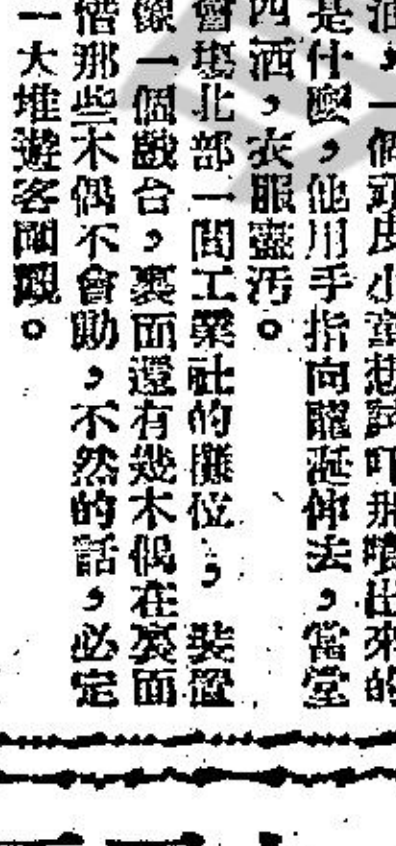 ，一個頑皮小童想試叮飛噴出來的
是什麼，他用手指向龍涎伸去，當堂
四洒，衣服盡汚。
會塲北部一間工業社的攤位，裝置
像一個戲台，裏面還有幾木偶在裏面
惜那些木偶不會動，不然的話，必定
一大堆遊客圍觀。